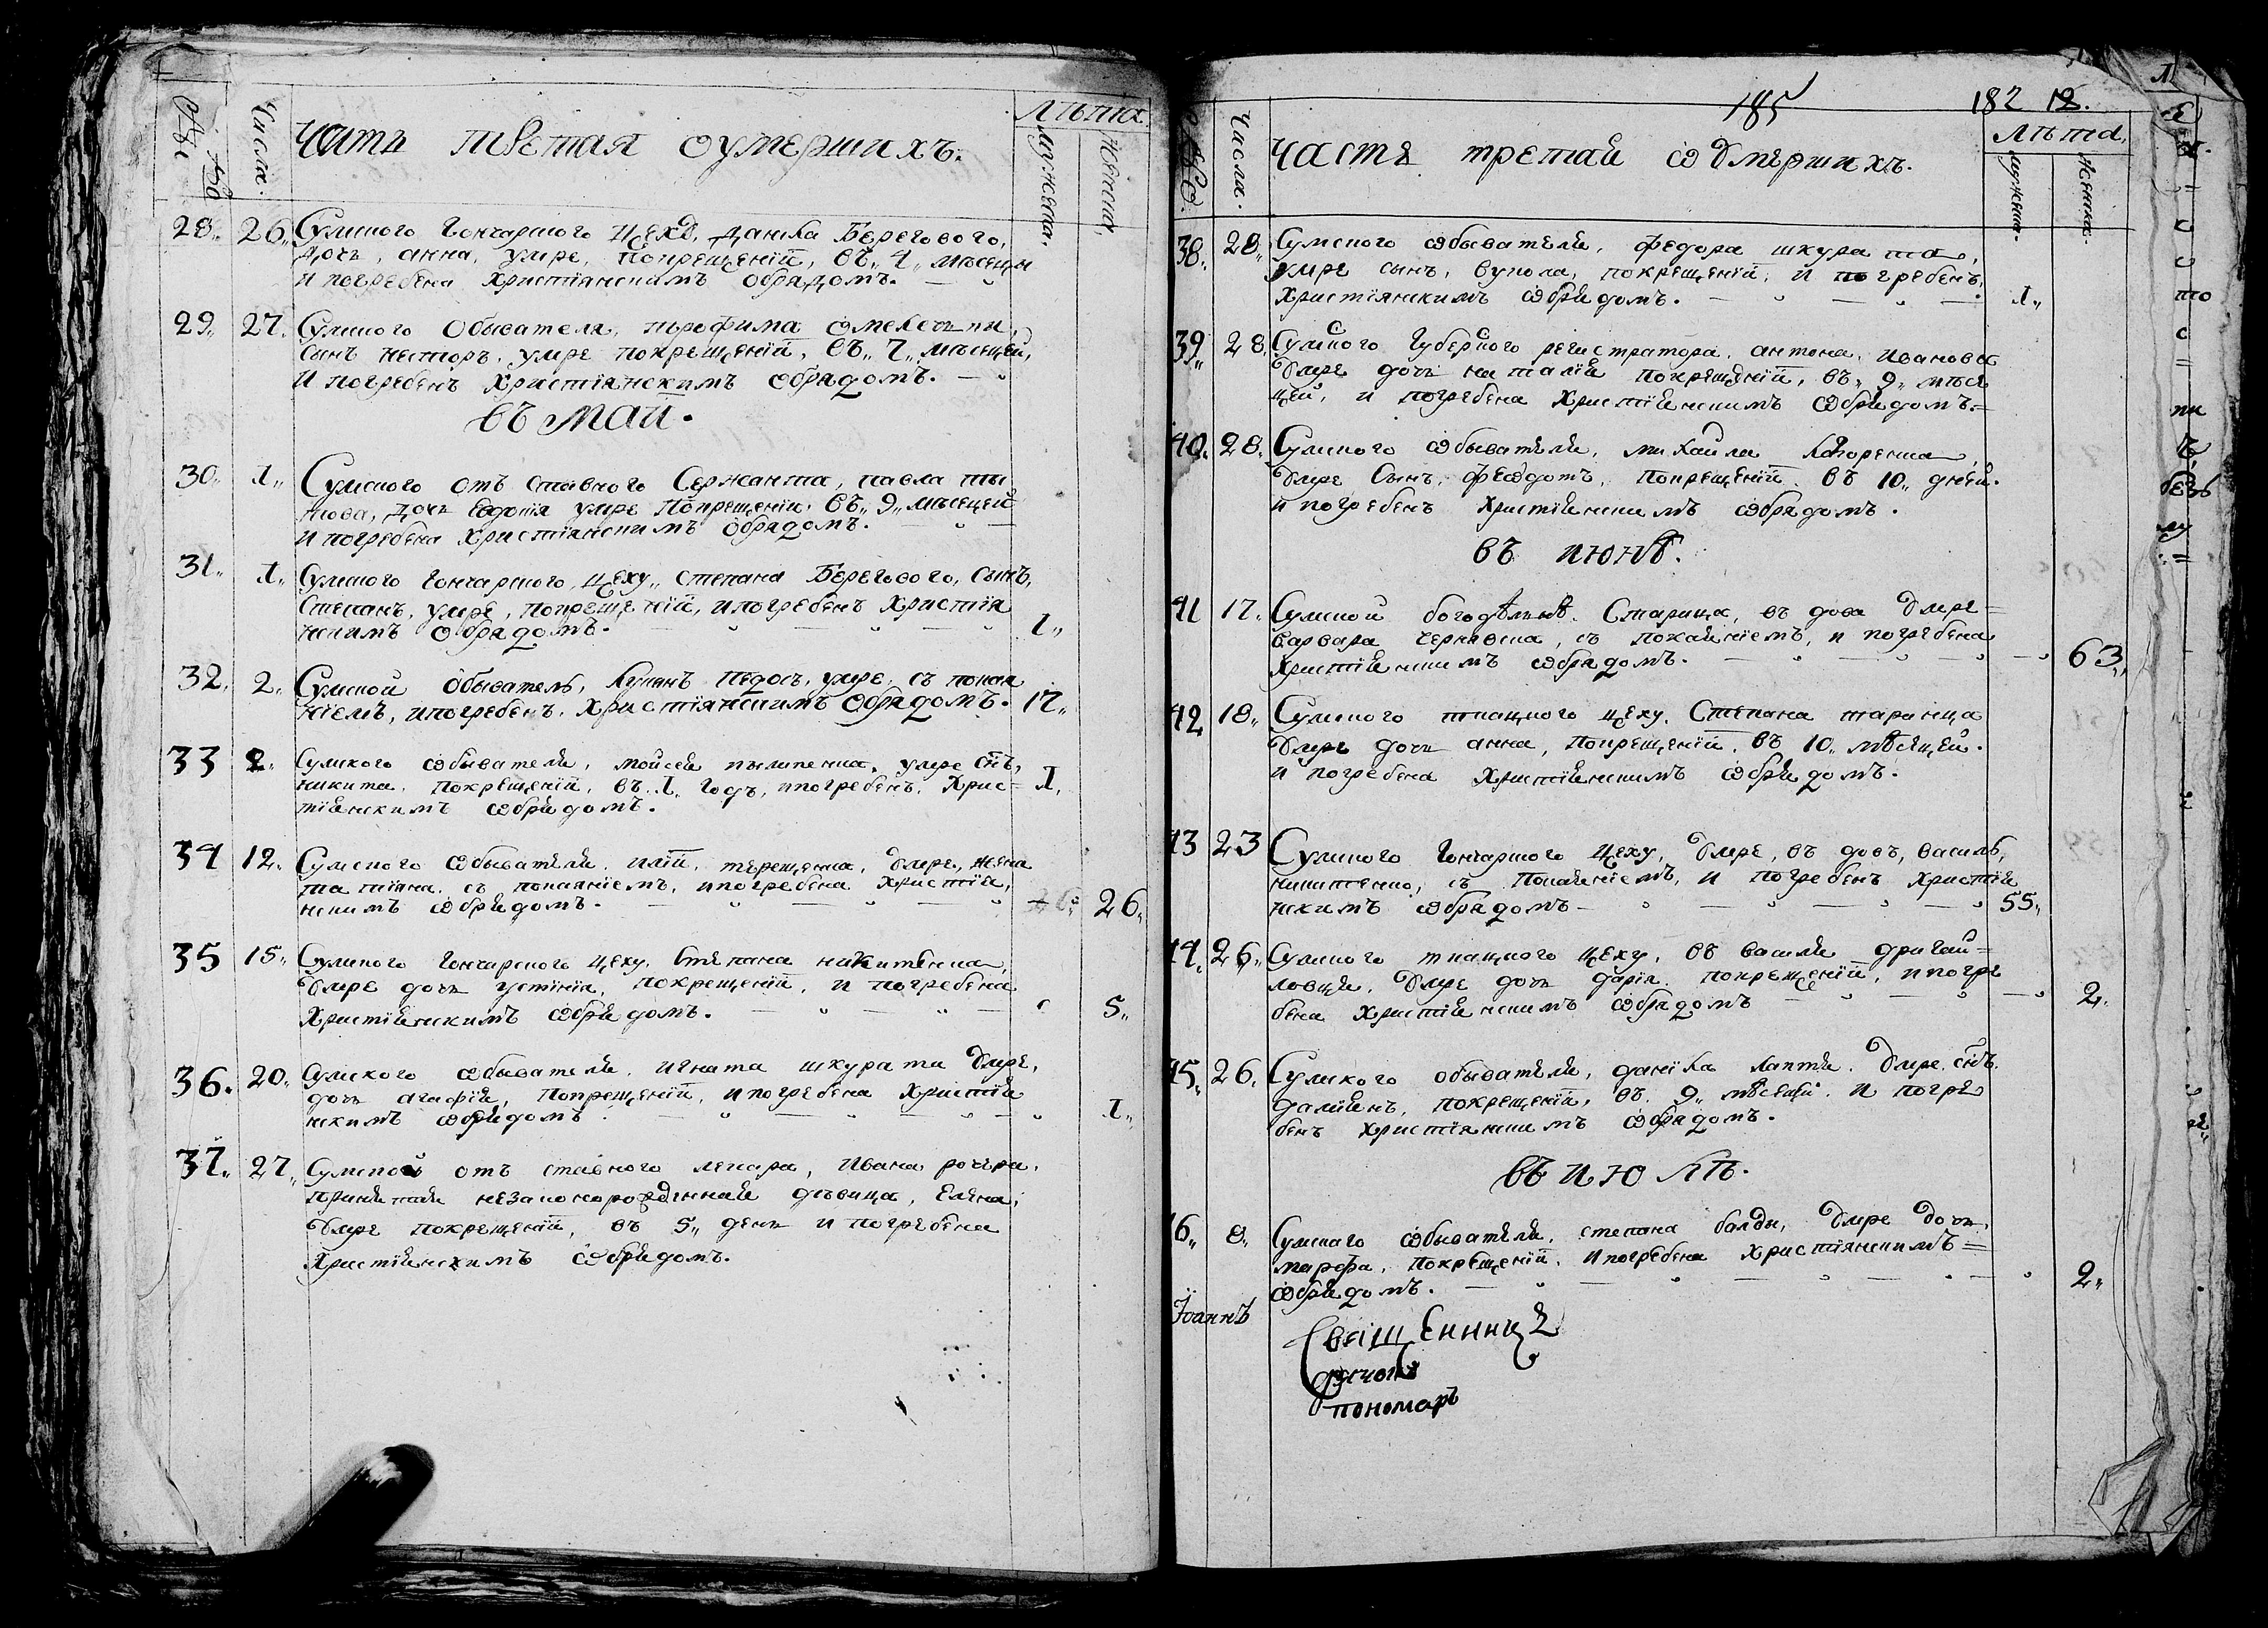 Числа.
Часть третая оумершихъ.
Лѣта.
Мужеска.
Женска.
28. 26. Сумского Гончарного Цеху, Данила Берегового,
дочь, анна, умре, покрещеніи, въ 4 мѣсецы
и погребена Христіянскимъ Обрядомъ.
29. 27. Сумского Обывателя, трофима
сынъ несторъ, умре покрещеніи, въ 7 мѣсецей,
и погребенъ Христіянскимъ Обрядомъ.
въ маи.
30. 1. Сумского отъ ставного Сержанта, павла ти
това, дочь Евдокія умре покрещеніи, въ 9 мѣсецей
и погребена Христіянскимъ Обрядомъ.
31. 1. Сумского Гончарного цеху, степана Берегового, сынъ,
Степанъ, умре, покрещеніи, и погребенъ Христія
нскимъ Обрядомъ. 1.
32. 2. Сумской Обыватель, умре, съ покая
ніемъ, и погребенъ, Христіянскимъ Обрядомъ. 17.
33 2. Сумского ѡбывателя, мойсея пилипенка, умре снъ,
никита, покрещеніи, въ 1 годъ, и погребенъ, Хрис=
тіянскимъ ѡбрядомъ. 1.
34 12. Сумского ѡбывателя, иліи, терещенка, умре, жена
татіяна, съ покаяніемъ, и погребена Христія,
нскимъ ѡбрядомъ. 26.
35 15. Сумского Гончарского цеху, Степана никитенка,
умре дочь устінія, покрещеніи, и погребена
Христіянскимъ ѡбрядомъ. 5.
36. 20. Сумского ѡбывателя, игната шкурати умре,
дочь агафія, покрещеніи, и погребена Христія
нскимъ ѡбрядомъ. 1.
37. 27. Сумской отъ ставного лекара, Ивана
принятая незаконорожденная дѣвица, Елена,
умре покрещеніи, въ 5 день и погребена
Христіянскимъ ѡбрядомъ.
185
182 12.
Числа.
Часть третая ѡ умершихъ.
Лѣта.
Мужеска.
Женска.
38. 28. Сумского ѡбывателя, федора шкурата,
умре сынъ, вукола, покрещеніи, и погребенъ,
Христіянскимъ ѡбрядомъ. 1.
39. 28. Сумского Губерного регистратора, антона, иванова
умре дочь наталія покрещеніи, въ 9 мѣся
цей, и погребена Христіянскимъ ѡбрядомъ.=
40. 28. Сумского ѡбывателя, михаила
умре Сынъ, феѡдотъ, покрещеніи въ 10 дней.
и погребенъ Христіянскимъ ѡбрядомъ.
въ июнѣ.
41 17. Сумской богодѣлнѣ, Старица, въ дова умре=
варвара, съ покаяніемъ, и погребена
Христіянскимъ ѡбрядомъ. 63.
42 18. Сумского ткацкого цеху, Степана таранца
умре дочь анна, покрещеніи, въ 10 мѣсяцей.
и погребена Христіянскимъ ѡбрядомъ.
43 23 Сумского Гончарного Цеху, умре, въ довъ, василь,
никитенко, съ покаяніемъ, и погребенъ Христія
нскимъ ѡбрядомъ 55.
44. 26. Сумского ткацкого цеху, въ василя
умре дочь дарія, покрещеніи, и погре
бена Христіянскимъ ѡбрядомъ 2.
45. 26. Сумского обывателя, данііла лаптя, умре снъ.
даміянъ, покрещеніи, въ 9 мѣсяцей, и погре
бенъ Христіянскимъ ѡбрядомъ.
въ июлѣ.
46. 8. Сумского ѡбывателя, степана балди, умре дочь,
марфа, покрещеніи, и погребена Христіянскимъ=
ѡбрядомъ. 2.
Іоаннъ
Священникъ
дячокъ
пономаръ